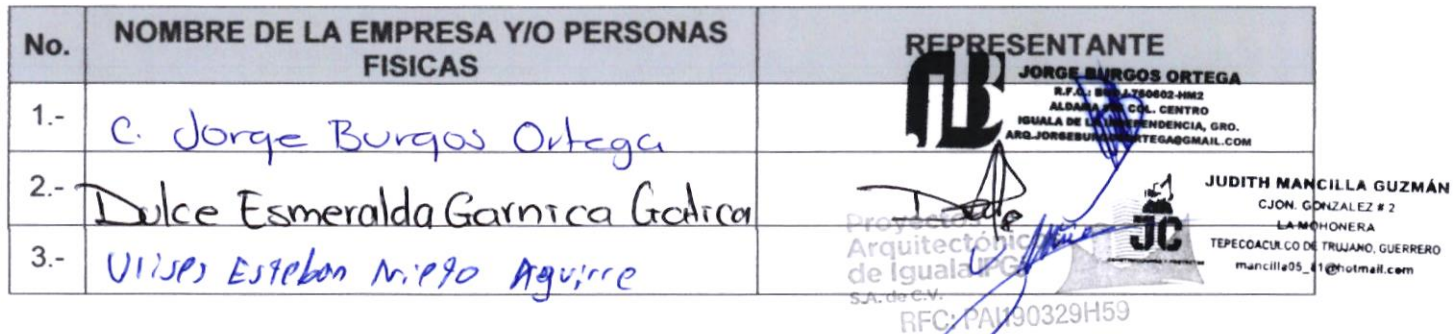 No. NOMBRE DE LA EMPRESA Y/O PERSONAS FISICAS REPRESENTANTE
JORGE BURGOS ORTEGA
COL. CENTRO
IGUALA DE LA INDEPENDENCIA, GRO.
1.- C. Jorge Burgos Ortega
2.- Dulce Esmeralda Garnica Galica
JUDITH MANCILLA GUZMÁN
CJON. GONZALEZ # 2
LA MOHONERA
TEPECOACUILCO DE TRUJANO, GUERRERO
JC
3.- Ulises Esteban Nieto Aguirre
Proyectos
Arquitectónicos
de Iguala IPG
S.A. de C.V.
RFC: PAI190329H59